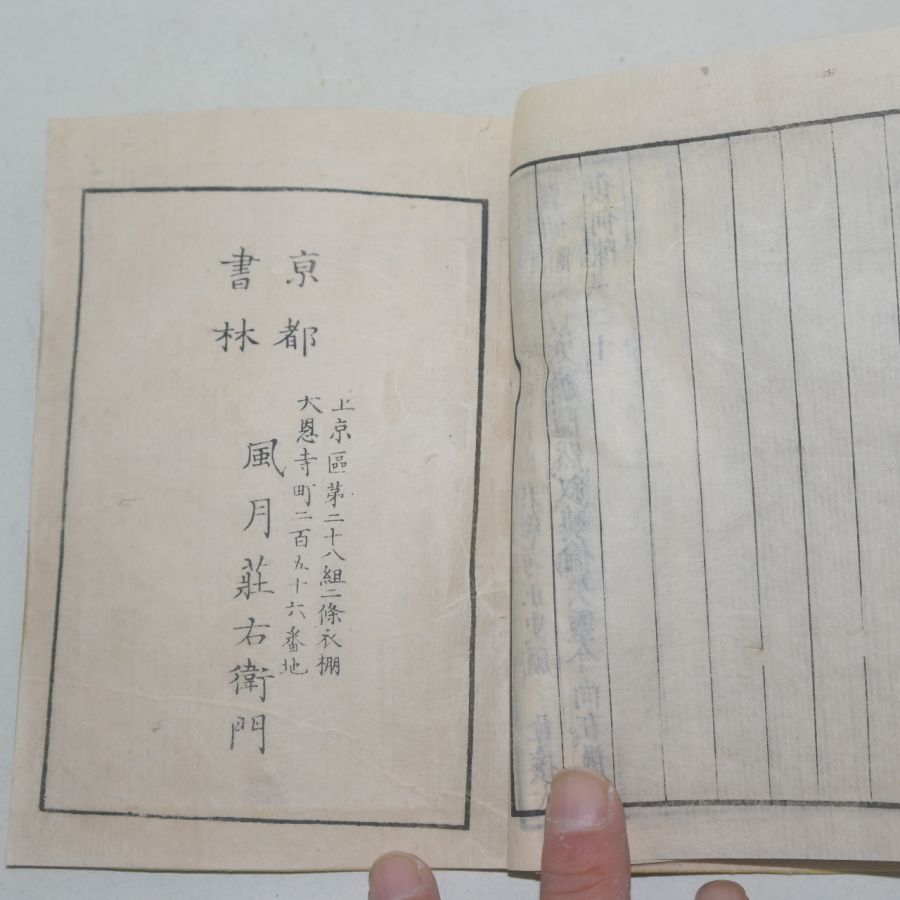 京都
書林
上京區第二十八組二條衣棚
大恩寺町二百五十六番地
風月莊右衛門